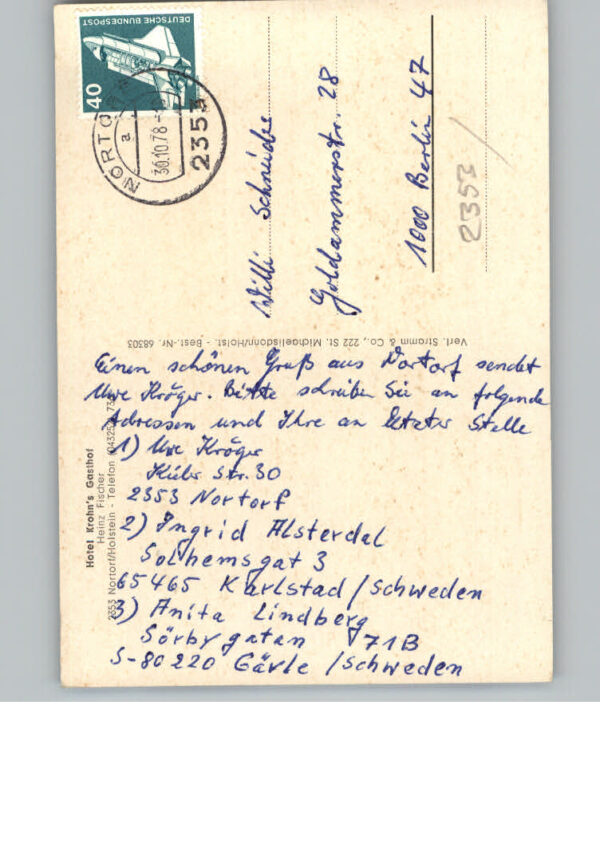 DEUTSCHE BUNDESPOST
40
NORTORF
a
30.10.78
2353
Willi Schneider
Goldammerstr. 28
1000 Berlin 47
2353
Verl. Stramm & Co., 222 St. Michaelisdonn/Holst. - Best.-Nr. 68303
Hotel Krohn's Gasthof
Heinz Fischer
2353 Nortorf/Holstein - Telefon (04392)
Einen schönen Gruß aus Nortorf sendet
Uwe Kröger. Bitte schreiben Sie an folgende
Adressen und Ihre an letzter Stelle
1) Uwe Kröger
Str. 30
2353 Nortorf
2) Ingrid Alsterdal
Solhemsgat 3
65465 Karlstad/Schweden
3) Anita Lindberg
Sörbygatan 71B
S-80220 Gävle/Schweden